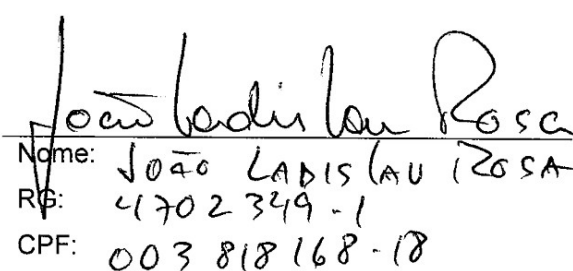 João Ladislau Rosa
Nome: JOÃO LADISLAU ROSA
RG: 4702349-1
CPF: 003 818 168-18